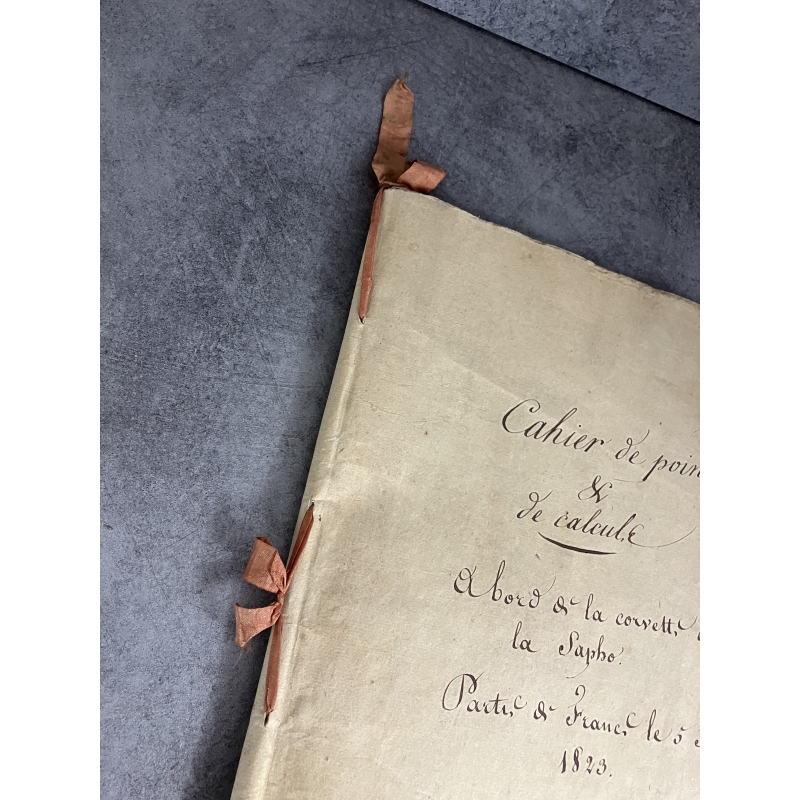 Cahier de poin
&
de calcule
A bord de la corvette
la Sapho.
Partie de France le 5
1823.